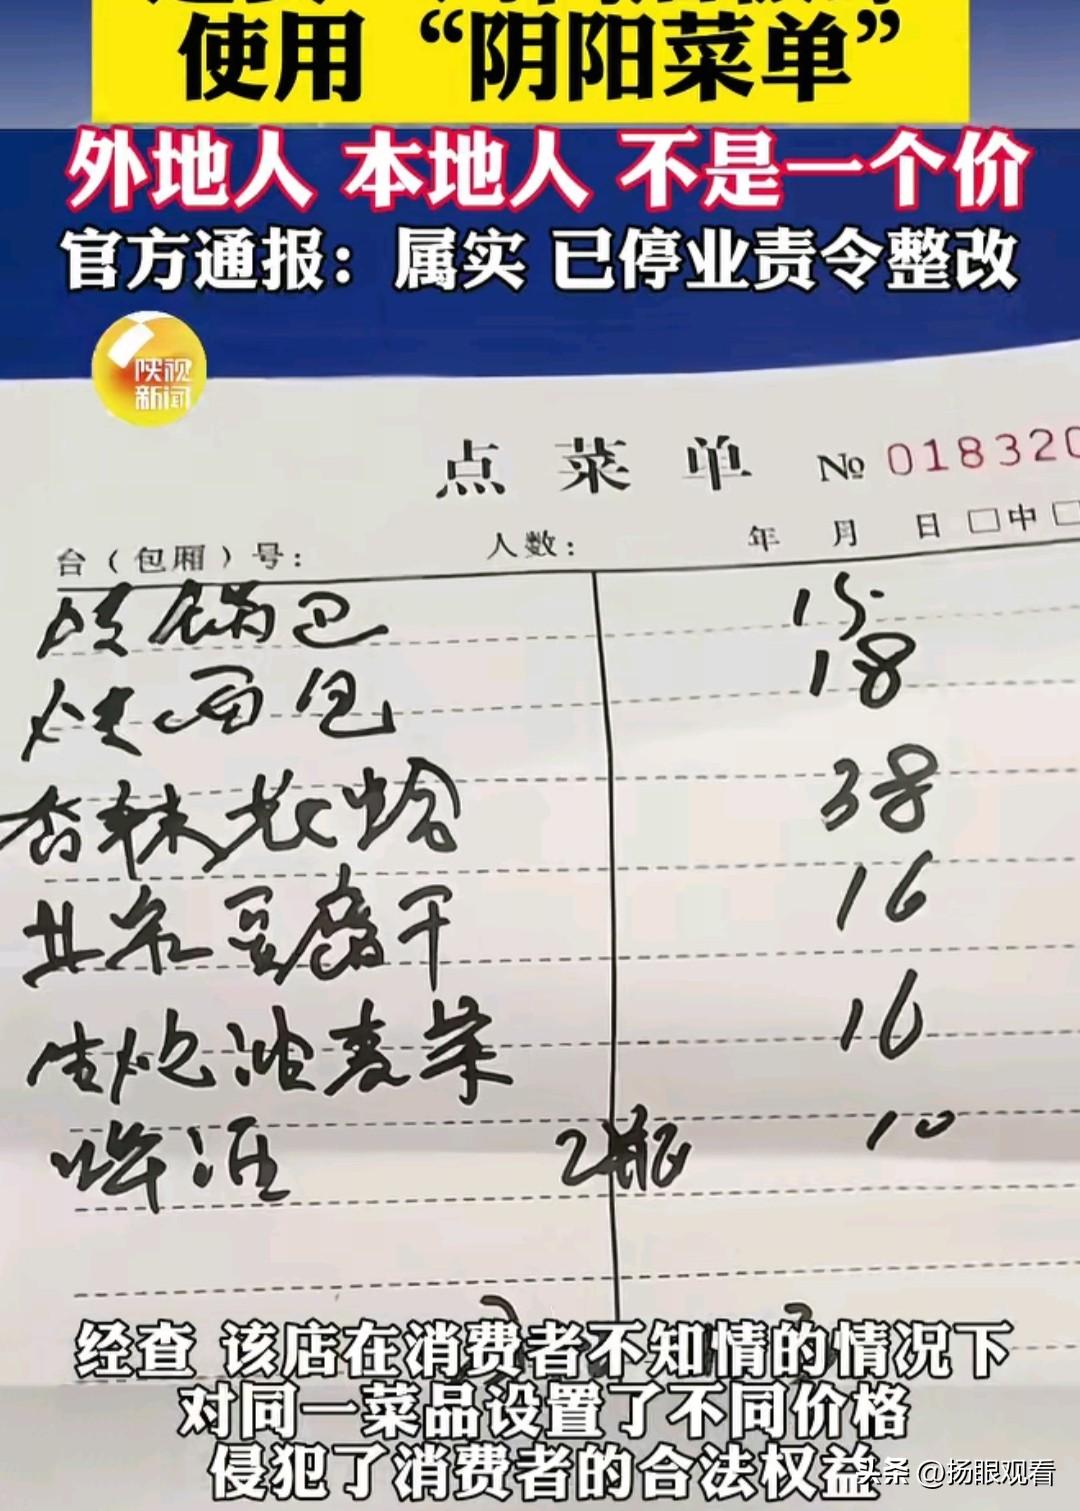 使用“阴阳菜单”
外地人 本地人 不是一个价
官方通报：属实 已停业责令整改
陕视
新闻
点菜单 № 018320
台（包厢）号： 人数： 年 月 日 □中 □
锅巴 15.
烤面包 18
香辣花蛤 38
豆腐干 16
生炒油麦菜 16
啤酒 2瓶 10
经查 该店在消费者不知情的情况下
对同一菜品设置了不同价格
侵犯了消费者的合法权益
头条 @扬眼观看